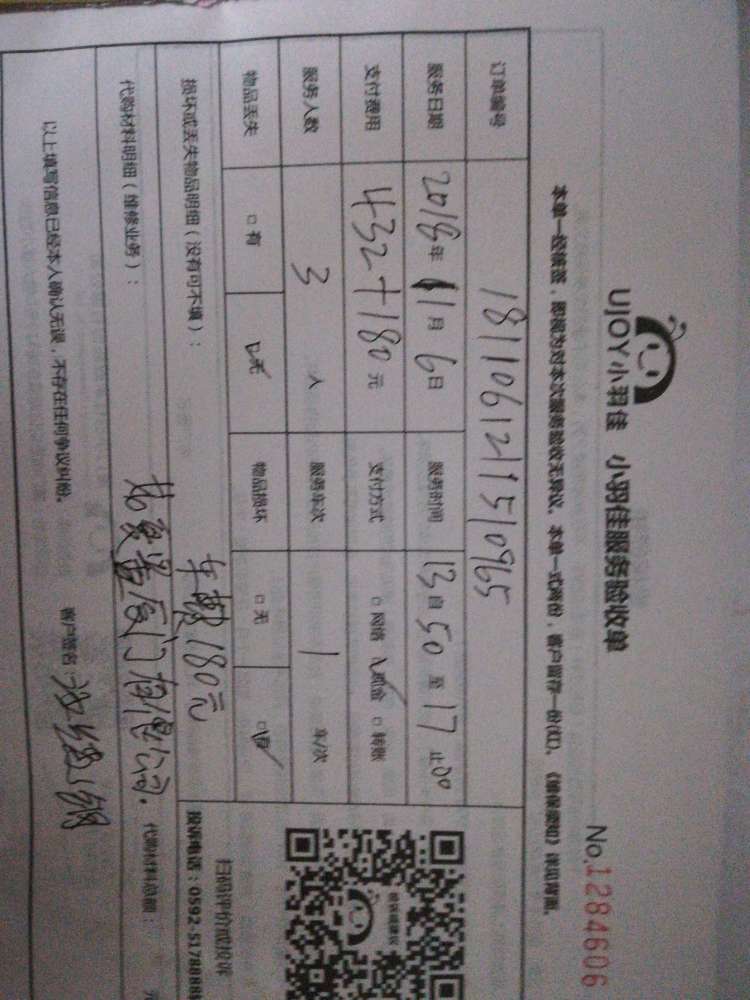 UJOY小羽佳 小羽佳服务验收单
No.1284606
本单一经填签，即视为对本次服务验收无异议。本单一式两份，客户留存一份(红)。《维保须知》详见背面。
订单编号 181106121510965
服务日期 2018年11月6日 服务时间 13自50至17止00
支付费用 432+180元 支付方式 □网络 □现金 □转账
服务人数 3人 服务车次 1车/次
物品丢失 □有 □无 物品损坏 □无 □有
损坏或丢失物品明细（没有可不填）：
车费180元
扫码评价或投诉
投诉电话：0592-5178888
代购材料明细（维修业务）：
代购材料总额： 元
以上填写信息已经本人确认无误，不存在任何争议纠纷。
客户签名